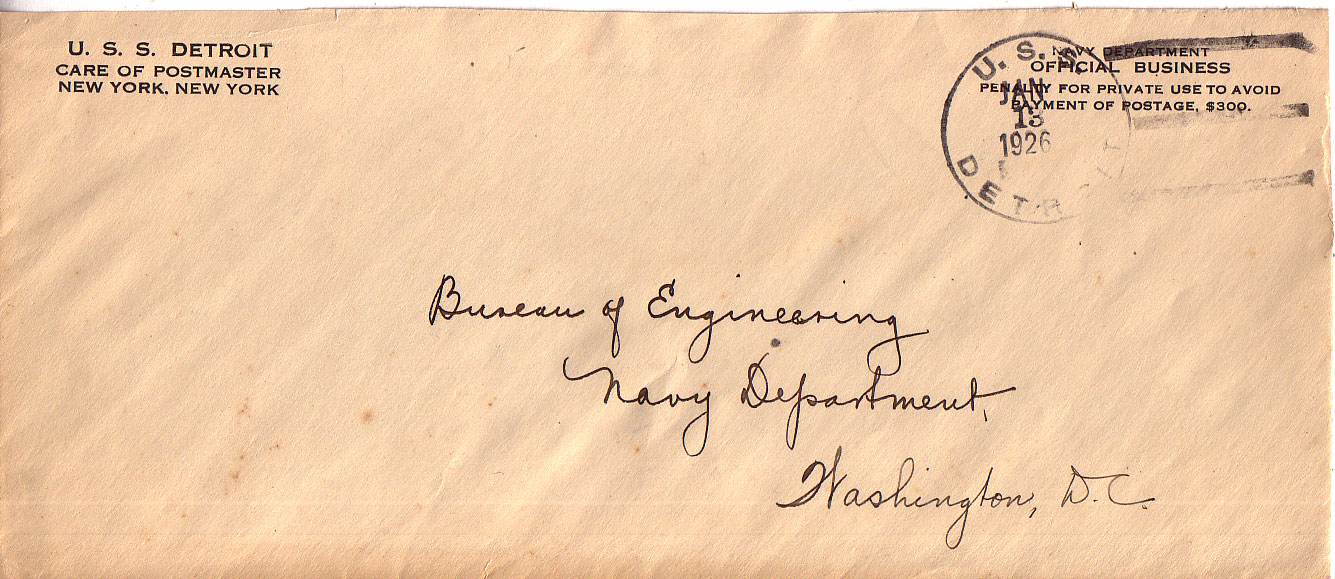 U. S. S. DETROIT
CARE OF POSTMASTER
NEW YORK, NEW YORK
NAVY DEPARTMENT
OFFICIAL BUSINESS
PENALTY FOR PRIVATE USE TO AVOID
PAYMENT OF POSTAGE, $300.
U. S. S.
JAN
13
1926
DETROIT
Bureau of Engineering
Navy Department,
Washington, D.C.